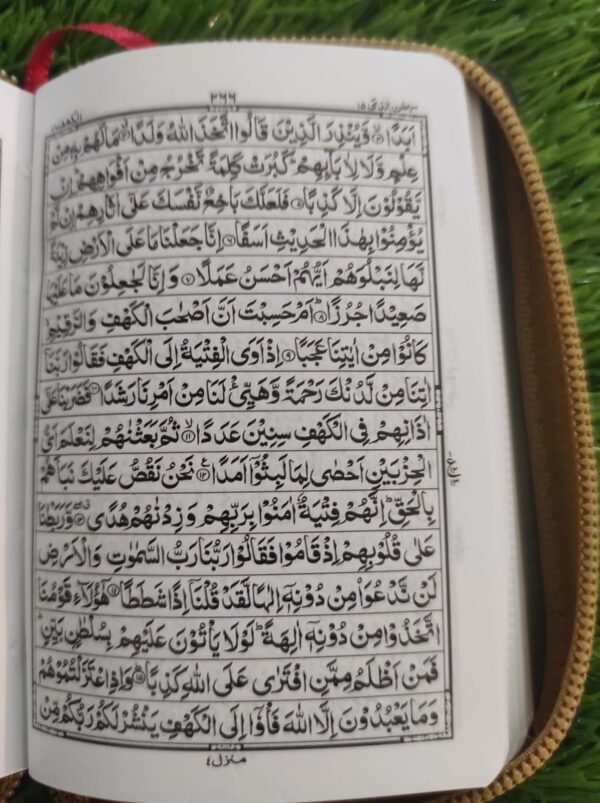 سبحن الذی ١٥ ٣٦٦ الكهف ١٨
اَبَدًا ۙ﴿۳﴾ وَّيُنْذِرَ الَّذِيْنَ قَالُوا اتَّخَذَ اللّٰهُ وَلَدًا ۗ﴿۴﴾ مَا لَهُمْ بِهٖ مِنْ
عِلْمٍ وَّلَا لِاٰبَآئِهِمْ ؕ كَبُرَتْ كَلِمَةً تَخْرُجُ مِنْ اَفْوَاهِهِمْ ؕ اِنْ
يَّقُوْلُوْنَ اِلَّا كَذِبًا ﴿۵﴾ فَلَعَلَّكَ بَاخِعٌ نَّفْسَكَ عَلٰٓى اٰثَارِهِمْ اِنْ لَّمْ
يُؤْمِنُوْا بِهٰذَا الْحَدِيْثِ اَسَفًا ﴿۶﴾ اِنَّا جَعَلْنَا مَا عَلَى الْاَرْضِ زِيْنَةً
لَّهَا لِنَبْلُوَهُمْ اَيُّهُمْ اَحْسَنُ عَمَلًا ﴿۷﴾ وَاِنَّا لَجٰعِلُوْنَ مَا عَلَيْهَا
صَعِيْدًا جُرُزًا ؕ﴿۸﴾ اَمْ حَسِبْتَ اَنَّ اَصْحٰبَ الْكَهْفِ وَالرَّقِيْمِ
كَانُوْا مِنْ اٰيٰتِنَا عَجَبًا ﴿۹﴾ اِذْ اَوَى الْفِتْيَةُ اِلَى الْكَهْفِ فَقَالُوْا رَبَّنَاۤ
اٰتِنَا مِنْ لَّدُنْكَ رَحْمَةً وَّهَيِّئْ لَنَا مِنْ اَمْرِنَا رَشَدًا ﴿۱۰﴾ فَضَرَبْنَا عَلٰٓى
اٰذَانِهِمْ فِى الْكَهْفِ سِنِيْنَ عَدَدًا ۙ﴿۱۱﴾ ثُمَّ بَعَثْنٰهُمْ لِنَعْلَمَ اَىُّ
الْحِزْبَيْنِ اَحْصٰى لِمَا لَبِثُوْۤا اَمَدًا ﴿۱۲﴾ نَحْنُ نَقُصُّ عَلَيْكَ نَبَاَهُمْ
بِالْحَقِّ ؕ اِنَّهُمْ فِتْيَةٌ اٰمَنُوْا بِرَبِّهِمْ وَزِدْنٰهُمْ هُدًى ﴿۱۳﴾ وَّرَبَطْنَا
عَلٰى قُلُوْبِهِمْ اِذْ قَامُوْا فَقَالُوْا رَبُّنَا رَبُّ السَّمٰوٰتِ وَالْاَرْضِ
لَنْ نَّدْعُوَا۟ مِنْ دُوْنِهٖۤ اِلٰهًا لَّقَدْ قُلْنَاۤ اِذًا شَطَطًا ﴿۱۴﴾ هٰٓؤُلَآءِ قَوْمُنَا
اتَّخَذُوْا مِنْ دُوْنِهٖۤ اٰلِهَةً ؕ لَوْلَا يَاْتُوْنَ عَلَيْهِمْ بِسُلْطٰنٍۢ بَيِّنٍ ؕ
فَمَنْ اَظْلَمُ مِمَّنِ افْتَرٰى عَلَى اللّٰهِ كَذِبًا ؕ﴿۱۵﴾ وَاِذِ اعْتَزَلْتُمُوْهُمْ
وَمَا يَعْبُدُوْنَ اِلَّا اللّٰهَ فَاْوٗۤا اِلَى الْكَهْفِ يَنْشُرْ لَكُمْ رَبُّكُمْ مِّنْ
منزل ٤